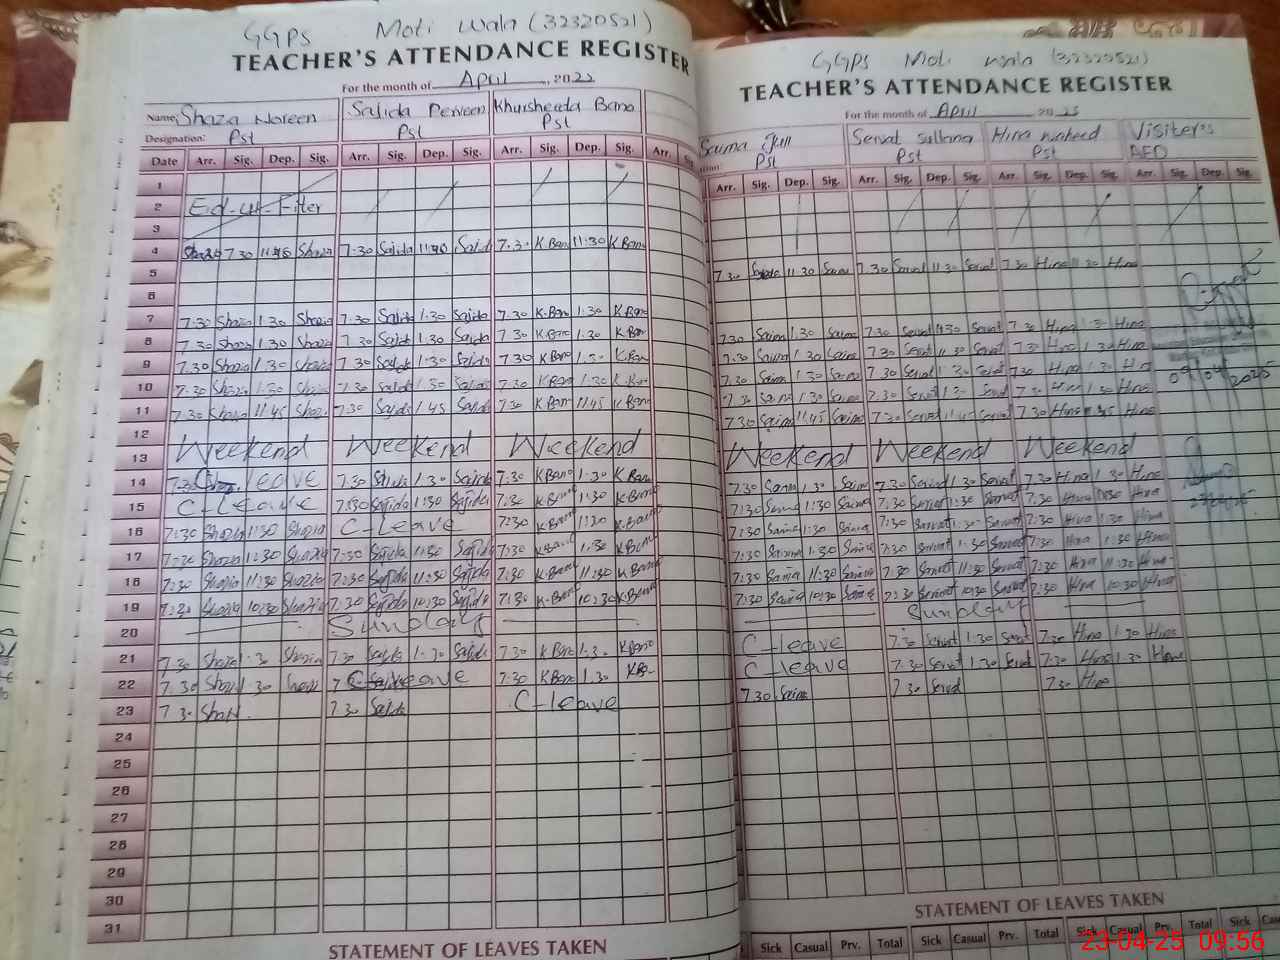 GGPS Moti Wala (32320521)
TEACHER'S ATTENDANCE REGISTER
For the month of April 2022
Name: Shaza Noreen Sajida Perveen Khursheeda Bano
Designation: Pst Pst Pst
Date Arr. Sig. Dep. Sig. Arr. Sig. Dep. Sig. Arr. Sig. Dep. Sig. Arr. Sig.
1
2 Ed-ul-Fiter
3
4 Shazia 7.30 11:45 Shazia 7:30 Sajida Sajida 7.30 K Bano 11:30 K Bano
5
6
7 7:30 Shazia 1.30 Shazia 7.30 Sajida 1:30 Sajida 7.30 K.Bano 1:30 K Bano
8 7:30 Shazia 1.30 Shazia 7.30 Sajida 1.30 Sajida 7.30 K.Bano 1:30 K Bano
9 7.30 Shazia 1:30 Shazia 7.30 Sajida 1:30 Sajida 7.30 K.Bano 1:30 K.Bano
10 7:30 Shazia 1:30 Shazia 7.30 Sajida 1.30 Sajida 7.30 K.Bano 1:30 K.Bano
11 7:30 Shazia 11:45 Shazia 7:30 Sajida 11:45 Sajida 7:30 K Bano 11:45 K Bano
12
13 Weekend Weekend Weekend
14 7:30 C leave 7.30 1.30 Sajida 7:30 K Bano 1:30 K Bano
15 C-Leave 7:30 Sajida 1:30 Sajida 7:30 K Bano 1:30 K Bano
16 7:30 Shazia 1:30 Shazia C-Leave 7:30 K Bano 1:30 K Bano
17 7:30 Shazia 1:30 Shazia 7:30 Sajida 1:30 Sajida 7:30 K Bano 1:30 K Bano
18 7:30 Shazia 11:30 Shazia 7:30 Sajida 11:30 Sajida 7:30 K-Bano 11:30 K Bano
19 7:30 Shazia 10:30 Shazia 7:30 Sajida 10:30 Sajida 7:30 K-Bano 10:30 K.Bano
20 Sunday
21 7.30 Shazia 1:30 Shazia 7:30 Sajida 1:30 Sajida 7.30 K Bano 1:30 K Bano
22 7.30 Shazia 1.30 C leave 7:30 K Bano 1.30 K Bano
23 7.30 Shazia 7.30 Sajida C-leave
24
25
26
27
28
29
30
31
STATEMENT OF LEAVES TAKEN
GGPS Moti wala (32320521)
TEACHER'S ATTENDANCE REGISTER
For the month of April 2025
Saima Servat sultana Hina waheed Visiter's
Pst Pst Pst AEO
Arr. Sig. Dep. Sig. Arr. Sig. Dep. Sig. Arr. Sig. Dep. Sig. Arr. Dep. Sig.
7.30 11.30 Saima 7.30 Servat 11:30 Servat 7.30 Hina 11:30 Hina
7:30 Saima 1:30 Saima 7:30 Servat 1:30 Servat 7:30 Hina 1:30 Hina
7:30 Saima 1:30 Saima 7.30 Servat 1:30 Servat 7.30 Hina 1:30 Hina
7.30 Saima 1:30 Saima 7.30 Servat 1:30 Servat 7.30 Hina 1:30 Hina 09/04/2025
7.30 Saima 1:30 Saima 7.30 Servat 1:30 Servat 7.30 Hina 1:30 Hina
7:30 Saima 11:45 Saima 7:30 Servat 11:45 Servat 7.30 Hina 11:45 Hina
Weekend Weekend Weekend
7.30 Saima 1.30 Saima 7:30 Servat 1:30 Servat 7:30 Hina 1:30 Hina
7:30 Saima 1:30 Saima 7:30 Servat 1:30 Servat 7:30 Hina 1:30 Hina
7:30 Saima 1:30 Saima 7:30 Servat 1:30 Servat 7:30 Hina 1:30 Hina
7:30 Saima 1:30 Saima 7:30 Servat 1:30 Servat 7:30 Hina 1:30 Hina
7:30 Saima 11:30 Saima 7:30 Servat 11:30 Servat 7:30 Hina 11:30 Hina
7:30 Saima 10:30 Saima 7:30 Servat 10:30 Servat 7:30 Hina 10:30 Hina
Sunday
C-leave 7:30 Servat 1:30 Servat 7:30 Hina 1:30 Hina
C leave 7:30 Servat 1:30 Servat 7:30 Hina 1:30 Hina
7.30 Saima 7.30 Servat 7.30 Hina
STATEMENT OF LEAVES TAKEN
Sick Casual Prv. Total Sick Casual Prv. Total Sick Casual Prv. Total Sick
23-04-25 09:56